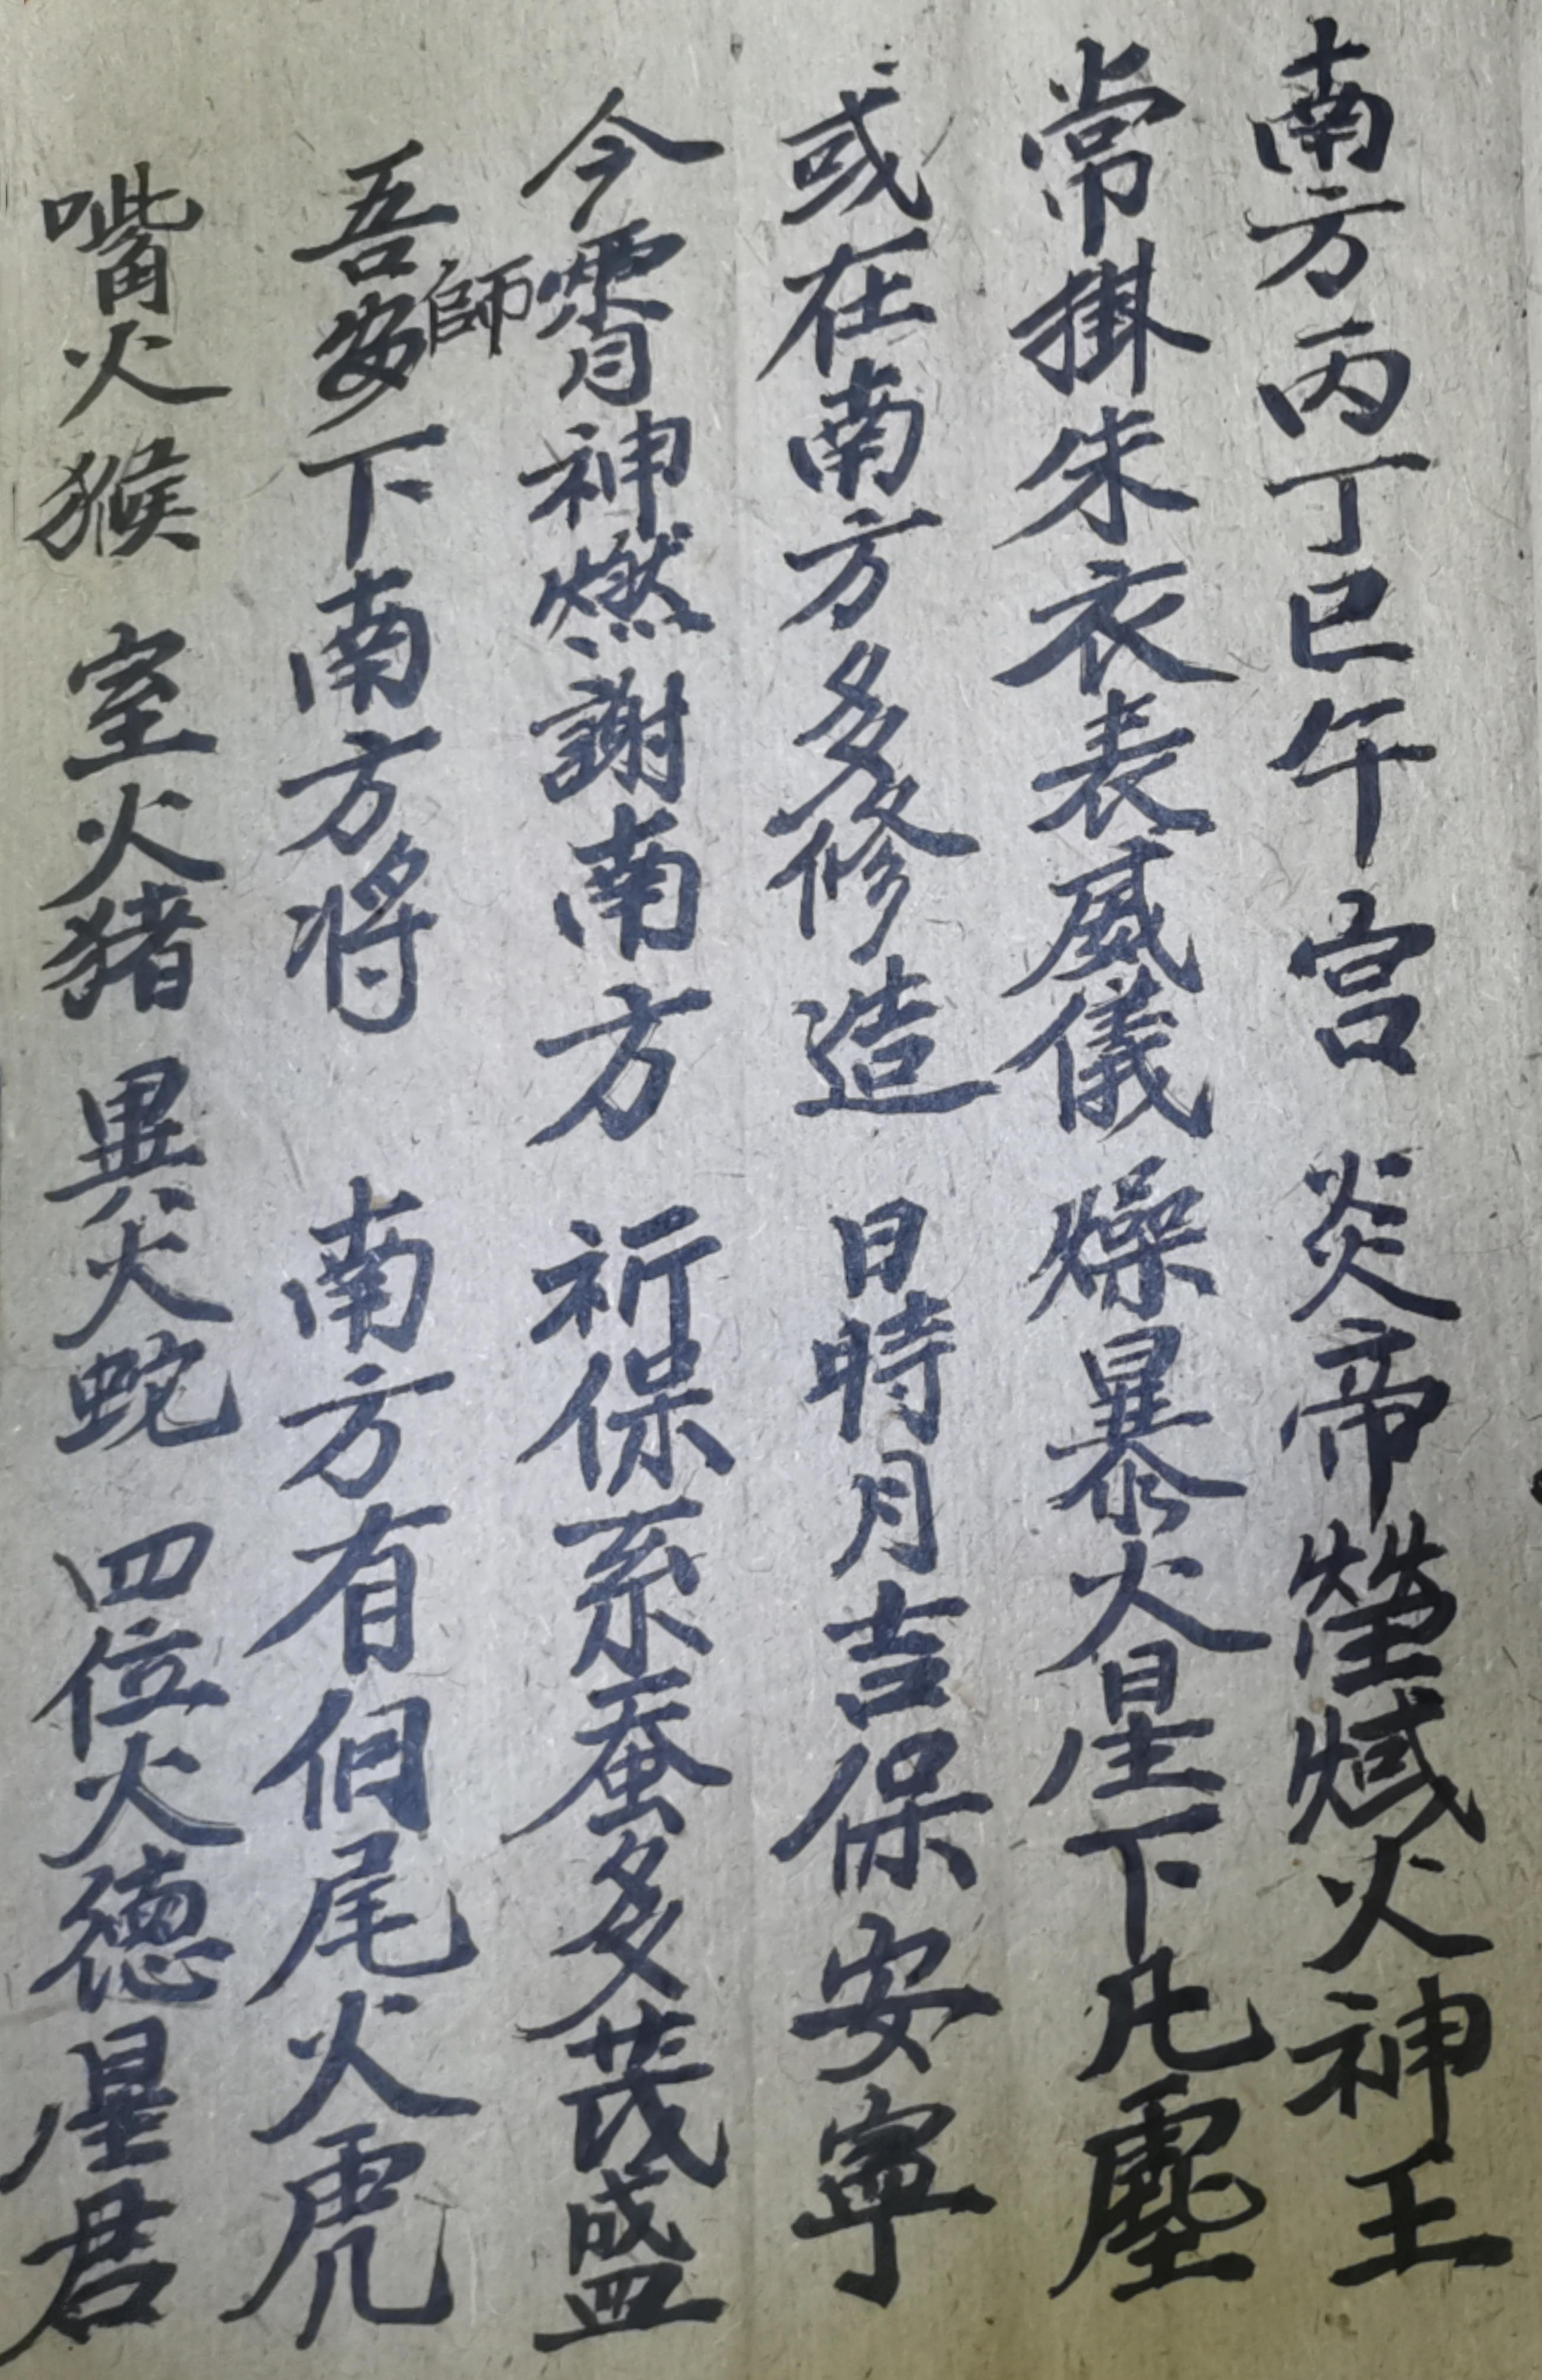 南方丙丁巳午宫炎帝熒惑火神王
常掛朱衣表威儀燥暴火星下凡塵
或在南方多修造日時月吉保安寧
今霄神燃謝南方祈保系蚕多茂盛
師
吾安下南方将南方有個尾火虎
嘴火猴室火猪異火蛇四位火德星君